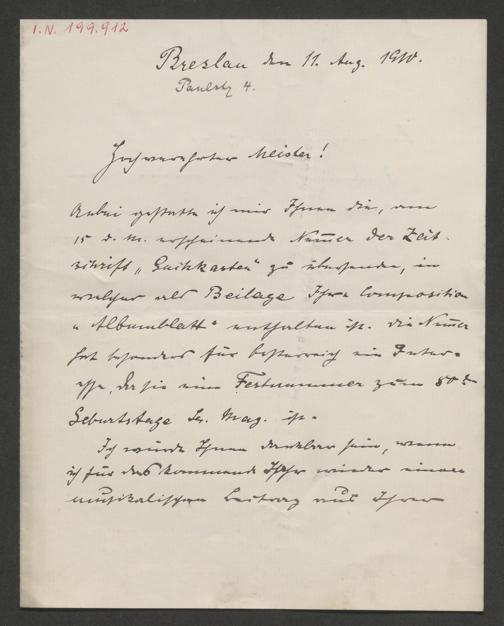 I.N. 199.912
Breslau den 11. Aug. 1910.
Paulstr. 4.
Hochverehrter Meister!
Anbei gestatte ich mir Ihnen die, am
15 d. M. erscheinende Num̅er der Zeit-
schrift „ " zu übersenden, in
welcher als Beilage Ihre Composition
„Albumblatt" enthalten ist. Die Num̅er
hat besonders für Oesterreich ein Inter-
esse, da sie eine Festnummer zum 80t
Geburtstage Sr. Maj. ist.
Ich würde Ihnen dankbar sein, wenn
ich für das kommende Jahr wieder einen
musikalischen Beitrag aus Ihrer